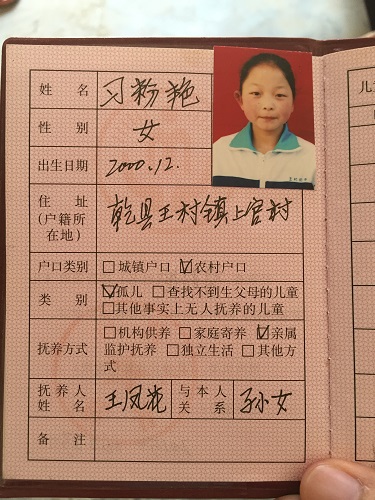 姓 名 习粉艳
性 别 女
出生日期 2000.12.
住 址 (户籍所在地) 乾县王村镇上官村
户口类别 □城镇户口 ☑农村户口
类 别 ☑孤儿 □查找不到生父母的儿童
□其他事实上无人抚养的儿童
抚养方式 □机构供养 □家庭寄养 ☑亲属
监护抚养 □独立生活 □其他方
式
抚养人姓名 王凤花 与本人关系 孙女
备 注
儿